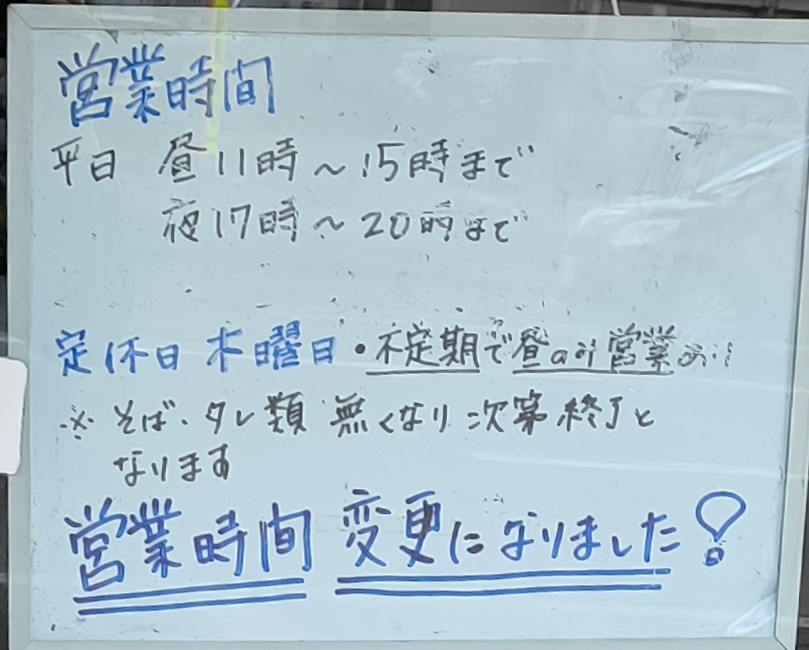 営業時間
平日 昼11時～15時まで
夜17時～20時まで
定休日 木曜日・不定期で昼のみ営業あり
※そば・タレ類 無くなり次第終了と
なります
営業時間 変更になりました!